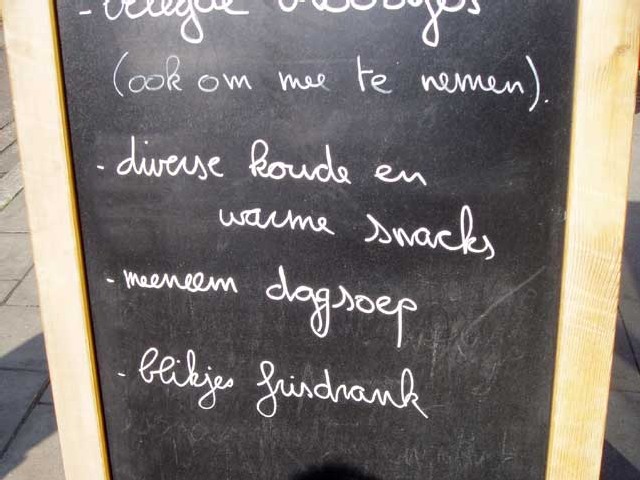 - belegde broodjes
(ook om mee te nemen).
- diverse koude en
warme snacks
- meeneem dagsoep
- blikjes frisdrank